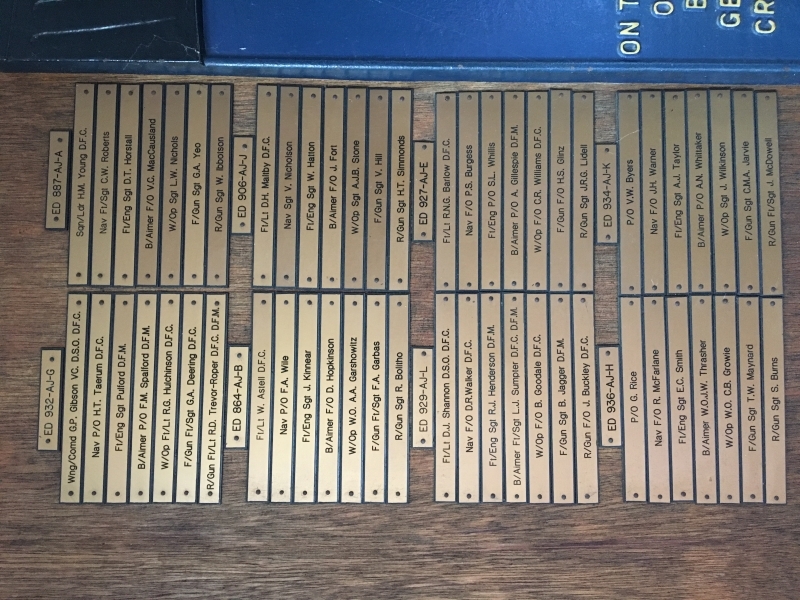 ED 932-AJ-G
Wng/Comd G.P. Gibson VC. D.S.O. D.F.C.
Nav P/O H.T. Taerum D.F.C.
Fl/Eng Sgt Pulford D.F.M.
B/Aimer P/O F.M. Spafford D.F.M.
W/Op Fl/Lt R.G. Hutchinson D.F.C.
F/Gun Fl/Sgt G.A. Deering D.F.C.
R/Gun Fl/Lt R.D. Trevor-Roper D.F.C. D.F.M.
ED 887-AJ-A
Sqn/Ldr H.M. Young D.F.C.
Nav Fl/Sgt C.W. Roberts
Fl/Eng Sgt D.T. Horsfall
B/Aimer F/O V.C. MacCausland
W/Op Sgt L.W. Nichols
F/Gun Sgt G.A. Yeo
R/Gun Sgt W. Ibbotson
ED 864-AJ-B
Fl/Lt W. Astell D.F.C.
Nav P/O F.A. Wile
Fl/Eng Sgt J. Kinnear
B/Aimer F/O D. Hopkinson
W/Op W.O. A.A. Garshowitz
F/Gun Fl/Sgt F.A. Garbas
R/Gun Sgt R. Bolitho
ED 906-AJ-J
Fl/Lt D.H. Maltby D.F.C.
Nav Sgt V. Nicholson
Fl/Eng Sgt W. Hatton
B/Aimer F/O J. Fort
W/Op Sgt A.J.B. Stone
F/Gun Sgt V. Hill
R/Gun Sgt H.T. Simmonds
ED 929-AJ-L
Fl/Lt D.J. Shannon D.S.O. D.F.C.
Nav F/O D.R.Walker D.F.C.
Fl/Eng Sgt R.J. Henderson D.F.M.
B/Aimer Fl/Sgt L.J. Sumpter D.F.C. D.F.M.
W/Op F/O B. Goodale D.F.C.
F/Gun Sgt B. Jagger D.F.M.
R/Gun F/O J. Buckley D.F.C.
ED 927-AJ-E
Fl/Lt R.N.G. Barlow D.F.C.
Nav F/O P.S. Burgess
Fl/Eng P/O S.L. Whillis
B/Aimer P/O A. Gillespie D.F.M.
W/Op F/O C.R. Williams D.F.C.
F/Gun F/O H.S. Glinz
R/Gun Sgt J.R.G. Lidell
ED 936-AJ-H
P/O G. Rice
Nav F/O R. McFarlane
Fl/Eng Sgt E.C. Smith
B/Aimer W.O.J.W. Thrasher
W/Op W.O. C.B. Growie
F/Gun Sgt T.W. Maynard
R/Gun Sgt S. Burns
ED 934-AJ-K
P/O V.W. Byers
Nav F/O J.H. Warner
Fl/Eng Sgt A.J. Taylor
B/Aimer P/O A.N. Whittaker
W/Op Sgt J. Wilkinson
F/Gun Sgt C.M.A. Jarvie
R/Gun Fl/Sgt J. McDowell
ON T
O
B
GE
CR